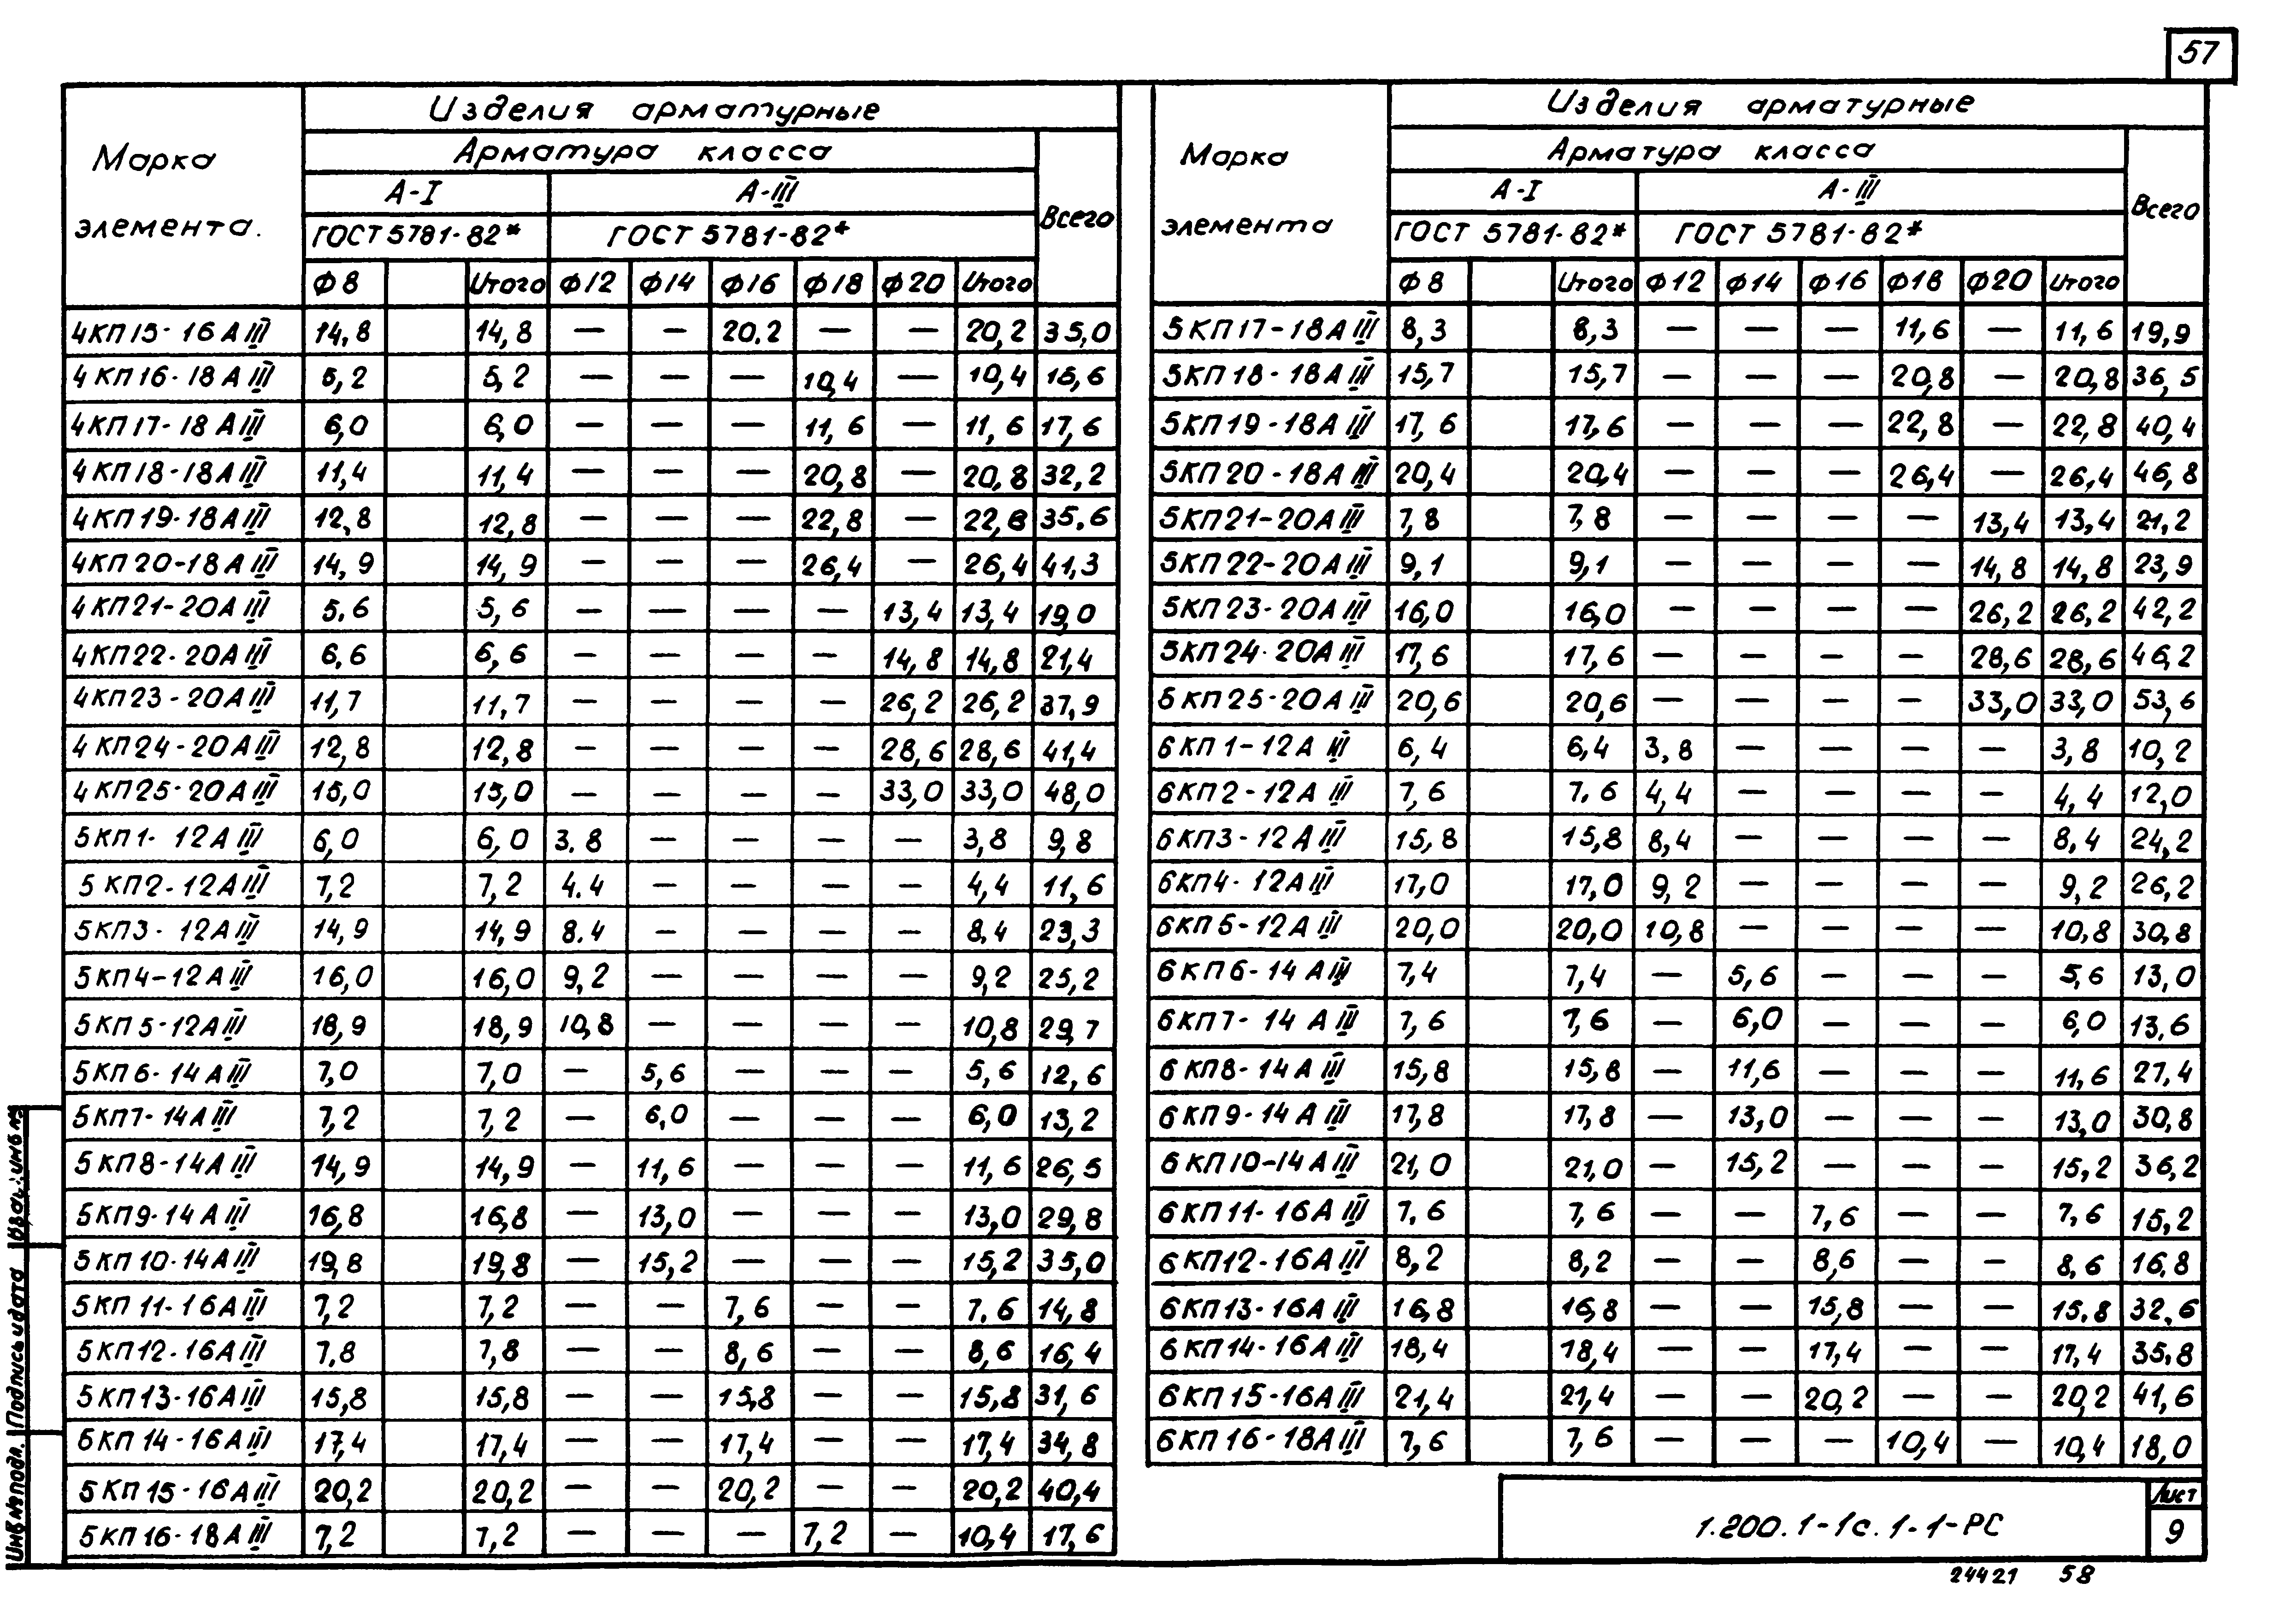 57
Изделия арматурные
Марка элемента.
Арматура класса
Всего
А-I
А-III
ГОСТ 5781-82*
ГОСТ 5781-82*
Ф8 Итого Ф12 Ф14 Ф16 Ф18 Ф20 Итого
4КП15-16АIII 14,8 14,8 — — 20.2 — — 20,2 35,0
4КП16-18АIII 5,2 5,2 — — — 10,4 — 10,4 15,6
4КП17-18АIII 6,0 6,0 — — — 11,6 — 11,6 17,6
4КП18-18АIII 11,4 11,4 — — — 20,8 — 20,8 32,2
4КП19-18АIII 12,8 12,8 — — — 22,8 — 22,8 35.6
4КП20-18АIII 14,9 14,9 — — — 26,4 — 26,4 41,3
4КП21-20АIII 5.6 5,6 — — — — 13,4 13,4 19,0
4КП22-20АIII 6.6 6,6 — — — — 14,8 14,8 21,4
4КП23-20АIII 11,7 11,7 — — — — 26,2 26,2 37,9
4КП24-20АIII 12,8 12,8 — — — — 28,6 28,6 41,4
4КП25-20АIII 15,0 15,0 — — — — 33,0 33,0 48,0
5КП1-12АIII 6,0 6,0 3.8 — — — — 3,8 9,8
5КП2-12АIII 7,2 7,2 4.4 — — — — 4,4 11,6
5КП3-12АIII 14,9 14,9 8.4 — — — — 8,4 23,3
5КП4-12АIII 16,0 16,0 9,2 — — — — 9,2 25,2
5КП5-12АIII 18,9 18,9 10,8 — — — — 10,8 29,7
5КП6-14АIII 7,0 7,0 — 5,6 — — — 5,6 12,6
5КП7-14АIII 7,2 7,2 — 6,0 — — — 6,0 13,2
5КП8-14АIII 14,9 14,9 — 11,6 — — — 11,6 26,5
5КП9-14АIII 16,8 16,8 — 13,0 — — — 13,0 29,8
5КП10-14АIII 19,8 19,8 — 15,2 — — — 15,2 35,0
5КП11-16АIII 7,2 7,2 — — 7,6 — — 7.6 14,8
5КП12-16АIII 7,8 7,8 — — 8,6 — — 8,6 16,4
5КП13-16АIII 15,8 15,8 — — 15,8 — — 15,8 31,6
6КП14-16АIII 17,4 17,4 — — 17,4 — — 17,4 34,8
5КП15-16АIII 20,2 20,2 — — 20,2 — — 20,2 40,4
5КП16-18АIII 7,2 7,2 — — — 7,2 — 10,4 17,6
Изделия арматурные
Марка элемента
Арматура класса
Всего
А-I
А-III
ГОСТ 5781-82*
ГОСТ 5781-82*
Ф8 Итого Ф12 Ф14 Ф16 Ф18 Ф20 Итого
5КП17-18АIII 8,3 8,3 — — — 11,6 — 11,6 19,9
5КП18-18АIII 15,7 15,7 — — — 20,8 — 20,8 36,5
5КП19-18АIII 17,6 17,6 — — — 22,8 — 22,8 40,4
5КП20-18АIII 20,4 20,4 — — — 26,4 — 26,4 46,8
5КП21-20АIII 7,8 7,8 — — — — 13,4 13,4 21,2
5КП22-20АIII 9,1 9,1 — — — — 14,8 14,8 23,9
5КП23-20АIII 16,0 16,0 — — — — 26,2 26,2 42,2
5КП24-20АIII 17,6 17,6 — — — — 28,6 28,6 46,2
5КП25-20АIII 20,6 20,6 — — — — 33,0 33,0 53,6
6КП1-12АIII 6,4 6,4 3,8 — — — — 3,8 10,2
6КП2-12АIII 7,6 7.6 4,4 — — — — 4,4 12,0
6КП3-12АIII 15,8 15,8 8,4 — — — — 8,4 24,2
6КП4-12АIII 17,0 17,0 9,2 — — — — 9,2 26,2
6КП5-12АIII 20,0 20,0 10,8 — — — — 10,8 30,8
6КП6-14АIII 7,4 7,4 — 5,6 — — — 5,6 13,0
6КП7-14АIII 7,6 7,6 — 6,0 — — — 6,0 13,6
6КП8-14АIII 15,8 15,8 — 11,6 — — — 11,6 27,4
6КП9-14АIII 17,8 17,8 — 13,0 — — — 13,0 30,8
6КП10-14АIII 21,0 21,0 — 15,2 — — — 15,2 36,2
6КП11-16АIII 7.6 7,6 — — 7,6 — — 7,6 15,2
6КП12-16АIII 8,2 8,2 — — 8,6 — — 8,6 16,8
6КП13-16АIII 16,8 16,8 — — 15,8 — — 15,8 32,6
6КП14-16АIII 18,4 18,4 — — 17,4 — — 17,4 35,8
6КП15-16АIII 21,4 21,4 — — 20,2 — — 20,2 41,6
6КП16-18АIII 7,6 7,6 — — — 10,4 — 10,4 18,0
1.200.1-1с.1-1-РС
Лист
9
24421 58
Инв№подл. Подпись и дата Взам. инв№